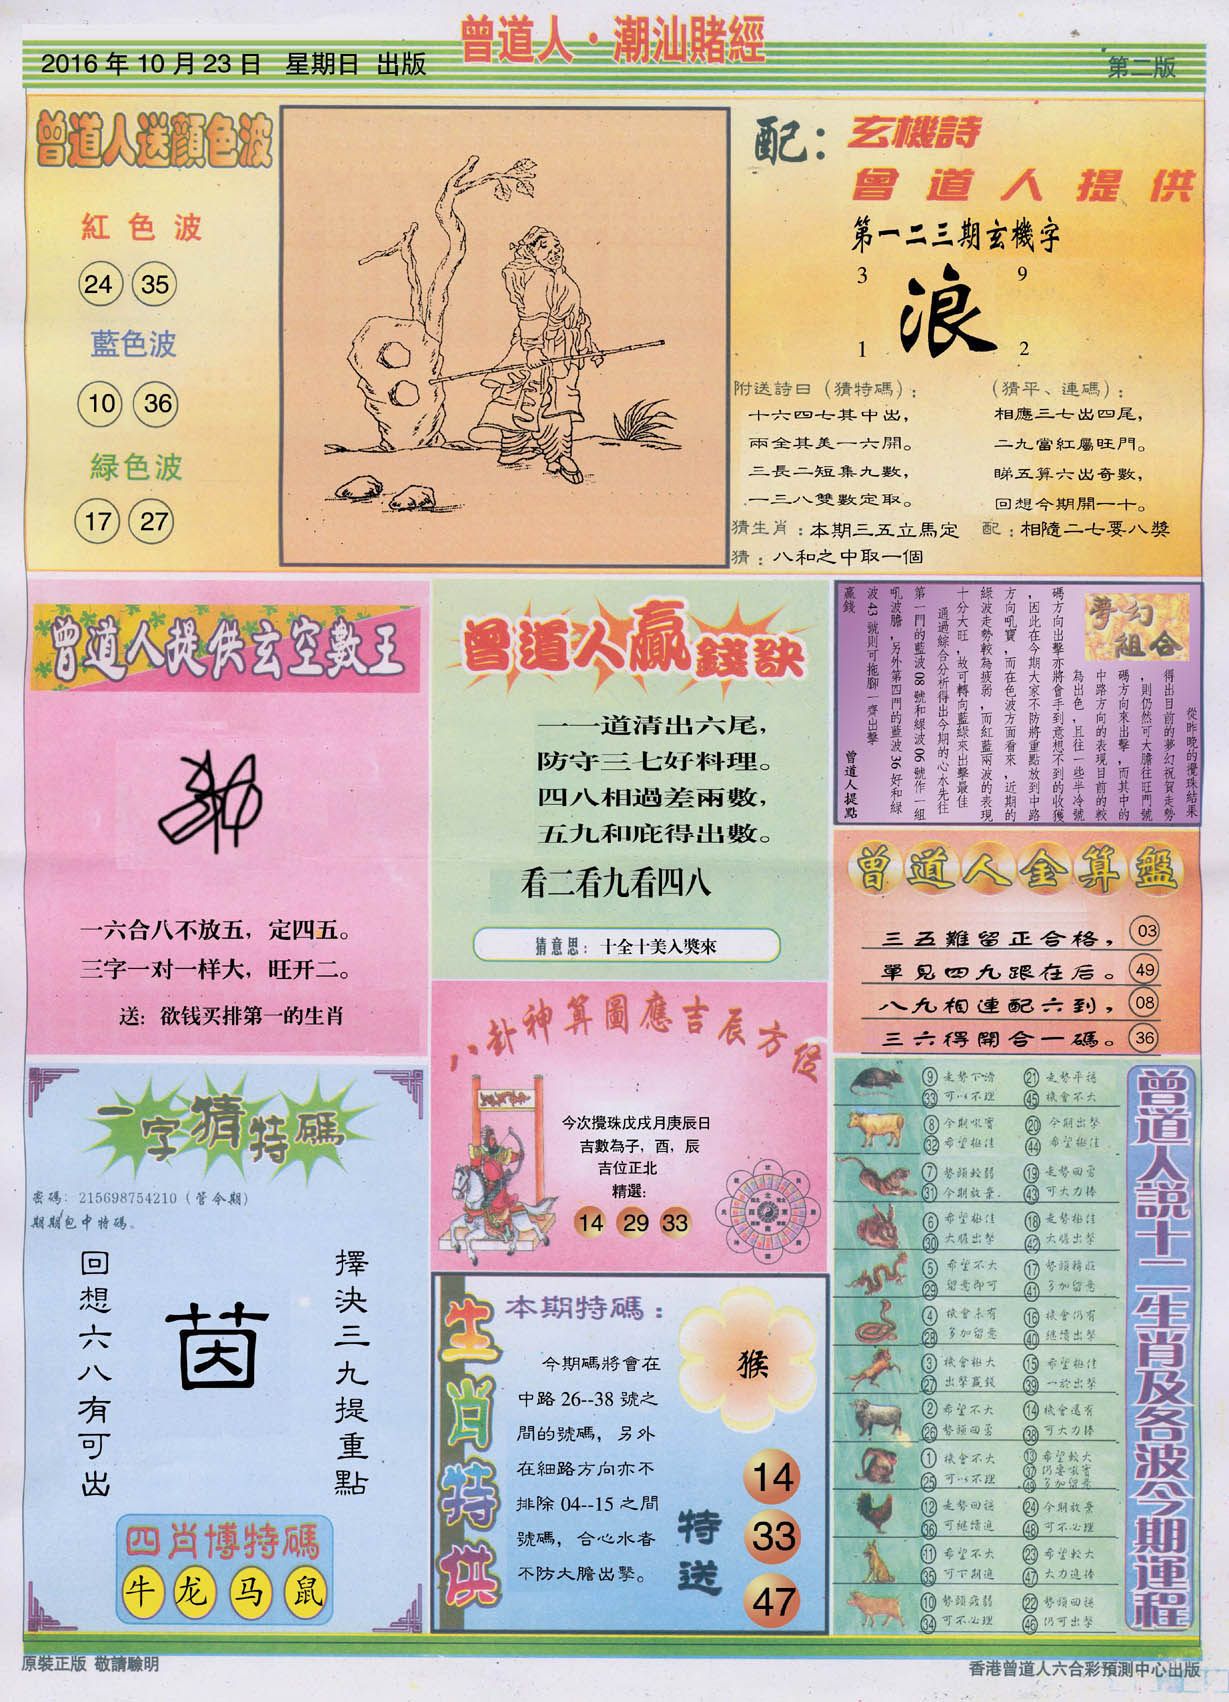 曾道人·潮汕賭經
2016 年 10 月 23 日 星期日 出版
第二版
曾道人送顏色波
紅色波
24 35
藍色波
10 36
緑色波
17 27
配：玄機詩
曾道人提供
第一二三期玄機字
3 9
浪
1 2
附送詩日（猜特碼）：
十六四七其中出，
兩全其美一六開。
三長二短集九數，
一三八雙數定取。
（猜平、連碼）：
相應三七出四尾，
二九當紅屬旺門。
睇五算六出奇數，
回想今期開一十。
猜生肖：本期三五立馬定 配：相隨二七要八獎
猜：八和之中取一個
曾道人提供玄空數王
一六合八不放五，定四五。
三字一对一样大，旺开二。
送：欲钱买排第一的生肖
曾道人贏錢訣
一一道清出六尾，
防守三七好料理。
四八相過差兩數，
五九和庇得出數。
看二看九看四八
猜意思：十全十美入獎來
夢幻組合
從昨晚的攪珠結果
得出目前的夢幻祝賀走勢
，則仍然可大膽往旺門號
碼方向來出擊，而其中的
中路方向的表現目前的較
為出色，且往一些半冷號
碼方向出擊亦將會手到意想不到的收獲
，因此在今期大家不防將重點放到中路
方向吼寶，而在色波方面看來，近期的
綠波走勢較為疲弱，而紅藍兩波的表現
十分大旺，故可轉向藍綠來出擊最佳
通過綜合分析得出今期的心水先往
第一門的藍波 08 號和綠波 06 號作一組
吼波膽，另外第四門的藍波 36 好和綠
波 43 號則可拖腳一齊出擊
贏錢
曾道人提點
曾道人金算盤
三五難留正合格， 03
單見四九跟在后。 49
八九相連配六到， 08
三六得開合一碼。 36
八卦神算圖應吉辰方位
今次攪珠戊戌月庚辰日
吉數為子，酉，辰
吉位正北
精選：
14 29 33
一字猜特碼
密碼：215698754210（管令期）
期期包中特碼。
擇決三九提重點
茵
回想六八有可出
四肖博特碼
牛 龙 马 鼠
生肖特供
本期特碼：
猴
今期碼將會在
中路 26--38 號之
間的號碼，另外
在細路方向亦不
排除 04--15 之間
號碼，合心水者
不防大膽出擊。
特送
14
33
47
曾道人説十二生肖及各波今期運程
9 走勢下滑 21 走勢平穩
33 可以不理 45 機會不大
8 今期吼寶 20 今期出擊
32 希望極佳 44 希望極佳
7 勢頭較弱 19 走勢回勇
31 今期放棄 43 可大力捧
6 希望極佳 18 走勢極佳
30 大膽出擊 42 大膽出擊
5 希望不大 17 勢頭轉旺
29 留意即可 41 多加留意
4 機會未有 16 機會仍有
28 多加留意 40 繼續出擊
3 機會極大 15 希望極佳
27 出擊贏錢 39 一於出擊
2 希望不大 14 機會還有
26 勢頭回勇 38 可大力捧
1 機會不大 13 希望較大
25 可以不理 37 仍要吼實
49 多加留意
12 走勢回穩 24 今期放棄
36 可繼續追 48 可不必理
11 希望不大 23 希望較大
35 可下期追 47 大力追捧
10 勢頭疲弱 22 勢頭回穩
34 可不必理 46 仍可出擊
原裝正版 敬請驗明
香港曾道人六合彩預測中心出版